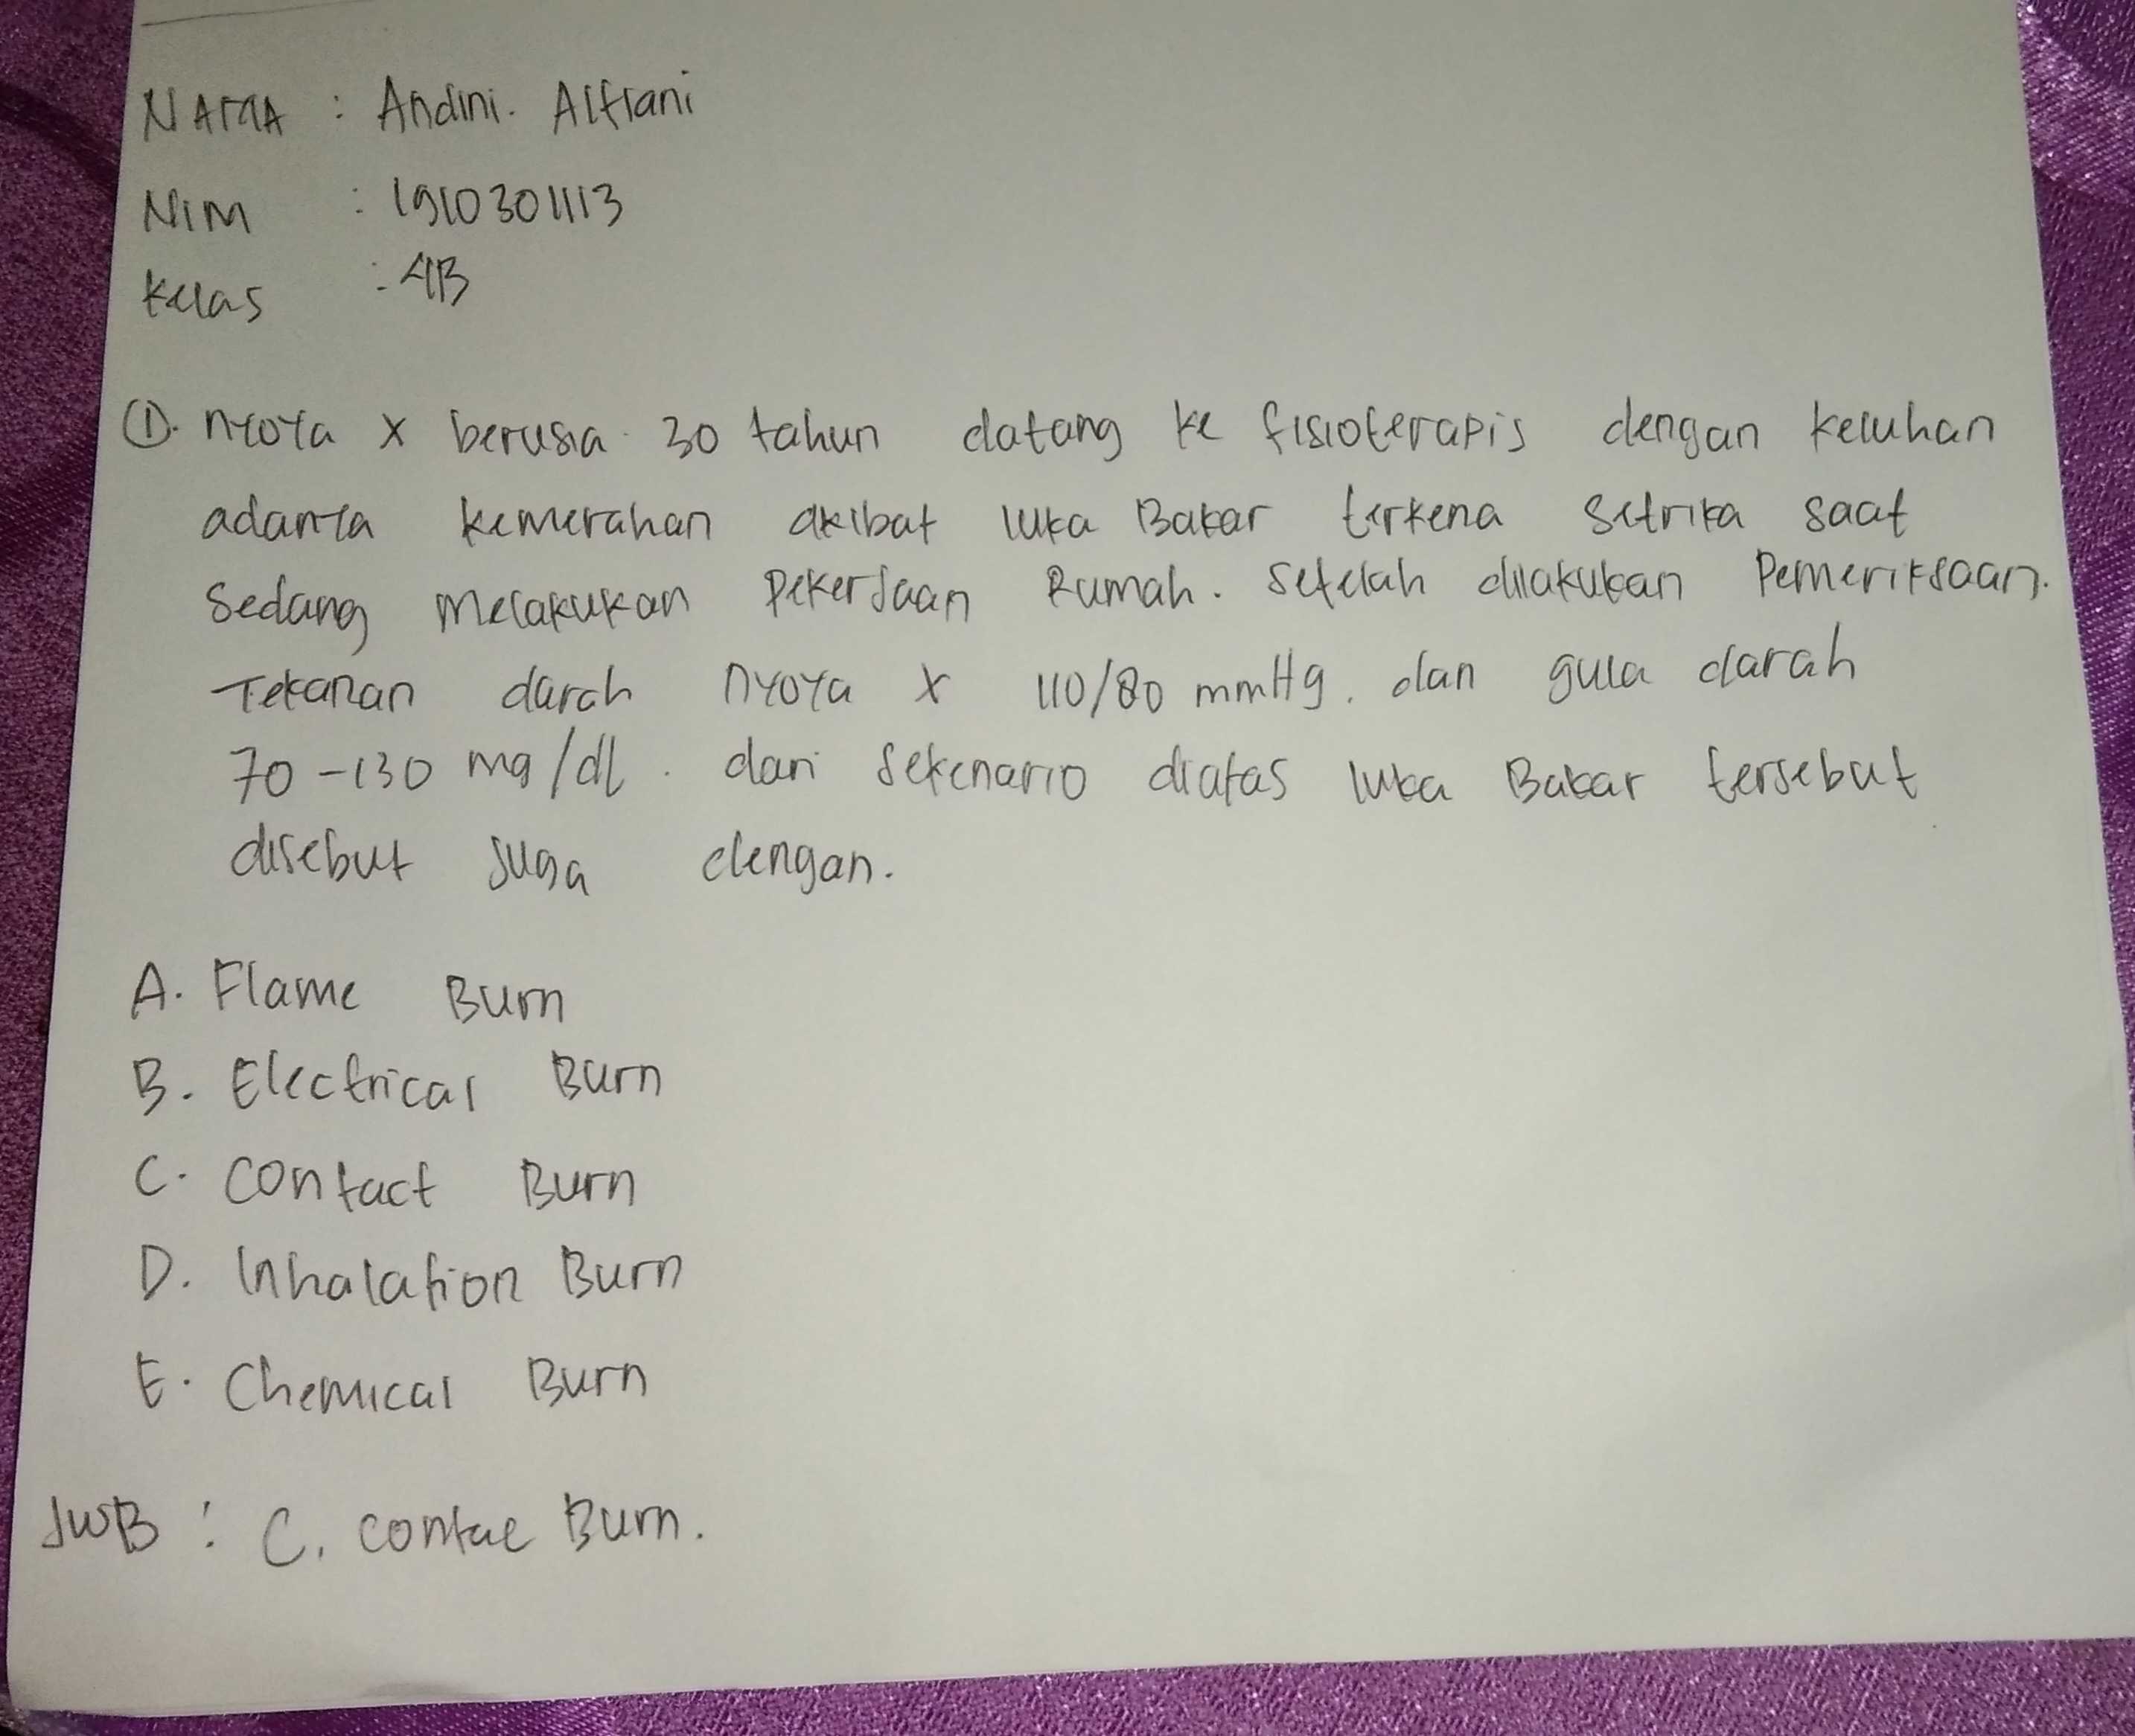 NAMA : Andini. Alfiani
NIM : 1910301113
Kelas : 4B
①. nyoya x berusia 30 tahun datang ke fisioterapis dengan keluhan
adanya kemerahan akibat luka Bakar terkena setrika saat
sedang melakukan Pekerjaan Rumah. setelah dilakukan Pemeriksaan.
Tekanan darah nyoya x 110/80 mmHg. dan gula darah
70-130 mg/dl. dari sekenario diatas luka Bakar tersebut
disebut juga dengan.
A. Flame Burn
B. Electrical Burn
C. Contact Burn
D. Inhalation Burn
E. Chemical Burn
JWB : C. contac Burn.